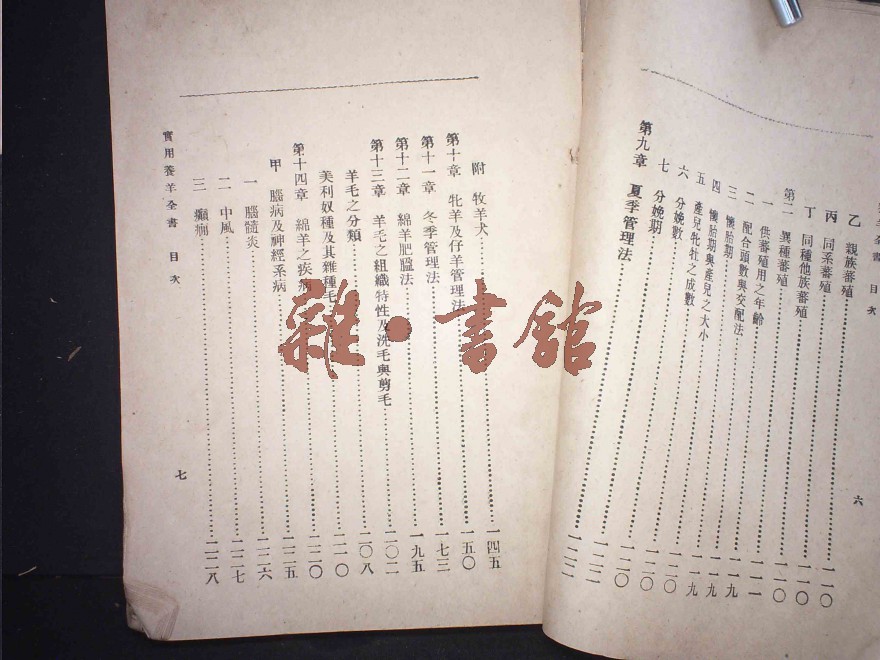 羊全書 目次
六
乙 親族蕃殖……一一〇
丙 同系蕃殖……一一〇
丁 同種他族蕃殖……一一〇
第二 異種蕃殖……一一一
一 供蕃殖用之年齡……一一九
二 配合頭數與交配法……一一九
三 懷胎期……一一九
四 懷胎期與產兒之大小……一二〇
五 產兒牝牡之成數……一二〇
六 分娩數……一二〇
七 分娩期……一二二
第九章 夏季管理法……一二二
附 牧羊犬……一四五
第十章 牝羊及仔羊管理法……一五〇
第十一章 冬季管理法……一七三
第十二章 綿羊肥膃法……一九五
第十三章 羊毛之組織特性及洗毛與剪毛……二〇二
羊毛之分類……二〇八
美利奴種及其雜種毛……二一〇
第十四章 綿羊之疾病……二二〇
甲 腦病及神經系病……二二五
一 腦髓炎……二二六
二 中風……二二七
三 癲癇……二二八
實用養羊全書 目次
七
雜·書館